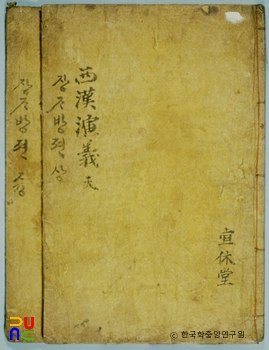 西漢演義 天
장ᄌᆞ방젼 상
宜休堂
장ᄌᆞ방젼
© 한국학중앙연구원